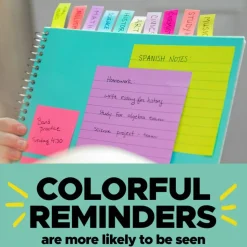 MATH
CIVICS
STUDY
MUSIC
SPANISH NOTES
Homework
write essay for history
Study for algebra
Science project
Band
practice
Sunday 4:30
COLORFUL
REMINDERS
are more likely to be seen